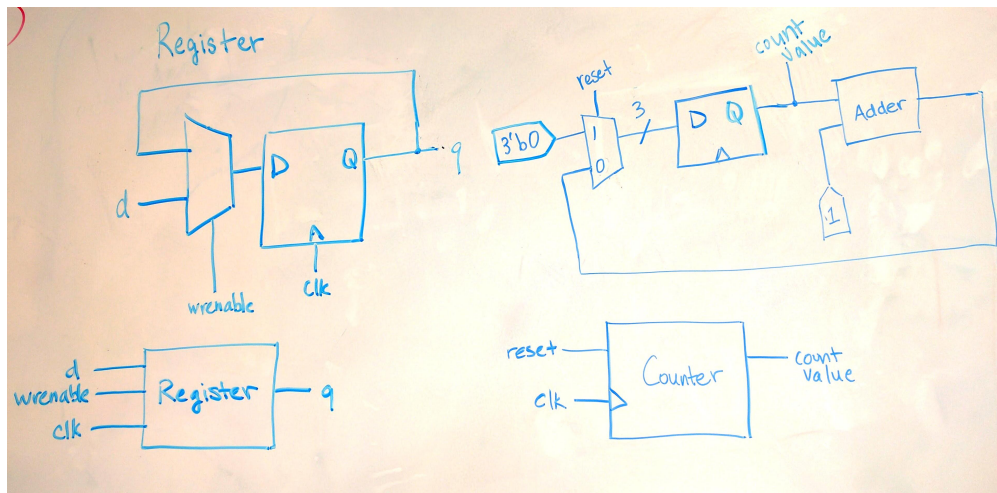 Register
d
D
Q
q
wrenable
clk
d
wrenable
clk
Register
q
reset
3'b0
1
0
3
D
Q
count
value
Adder
1
reset
clk
Counter
count
value